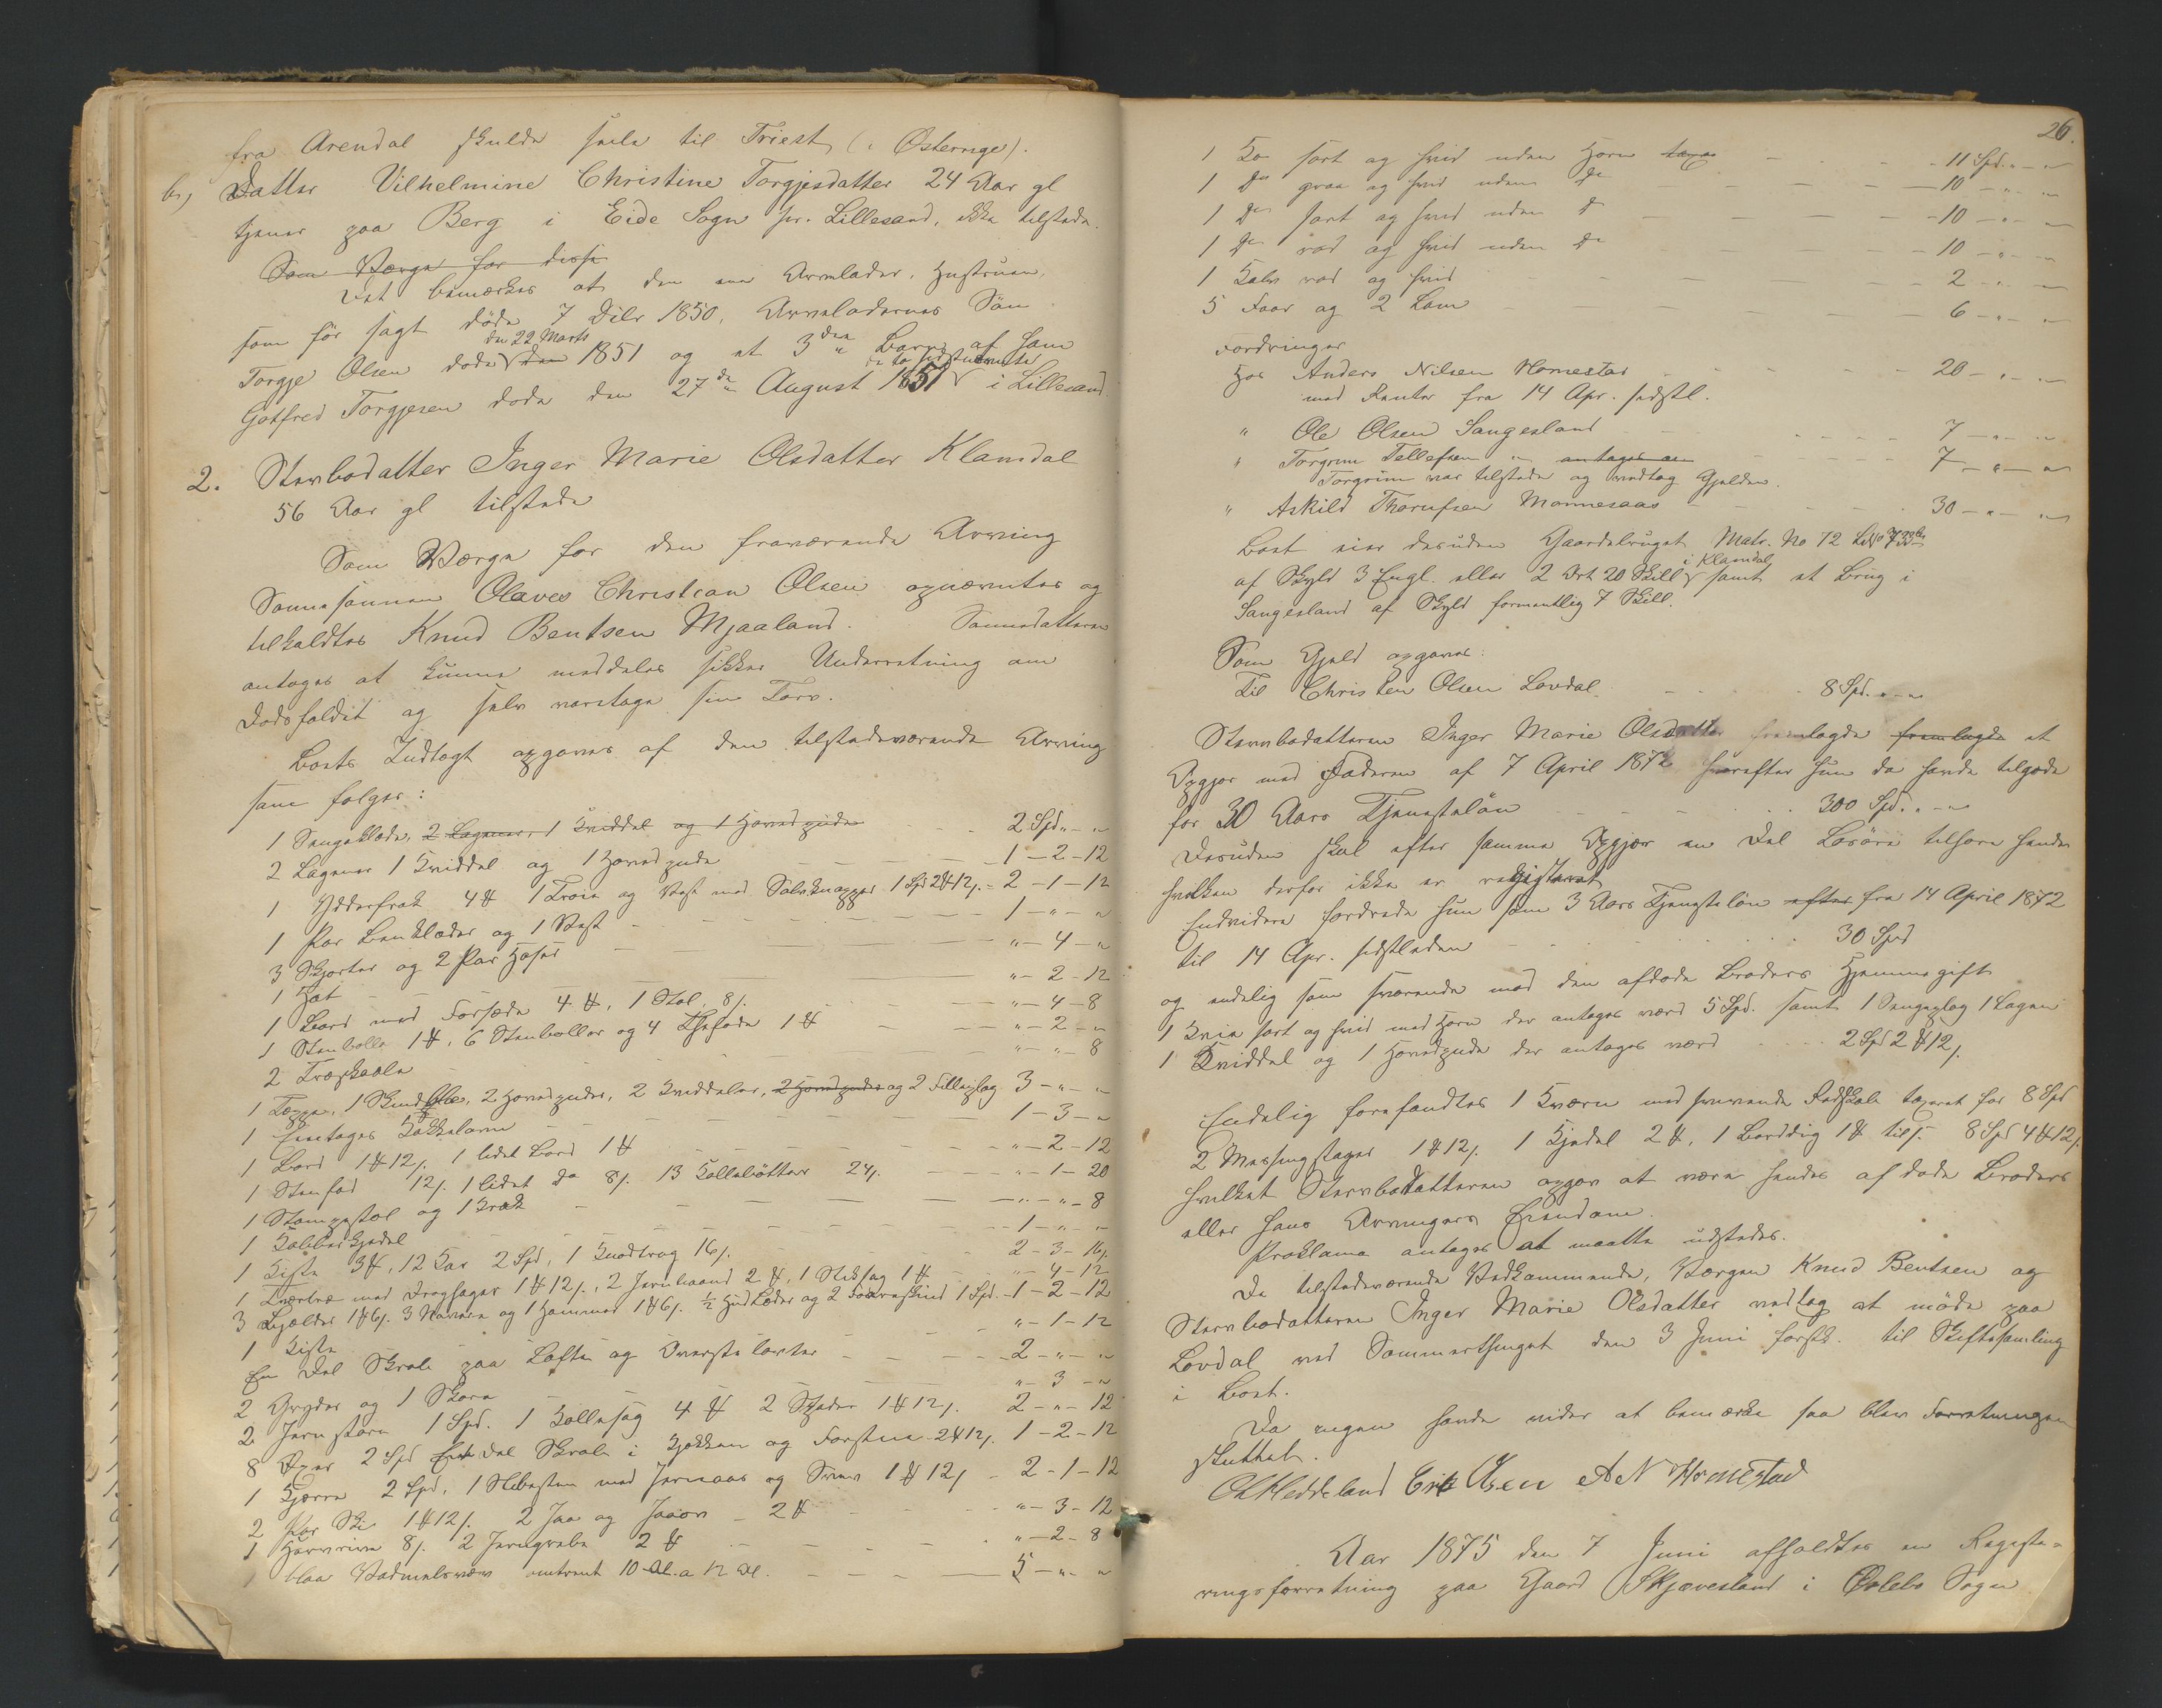 fra Arendal skulde seile til Triest (i Østerrige).
b, Datter Vilhelmine Christine Torgjesdatter 24 Aar gl
tjener paa Berg i Eide Sogn pr. Lillesand, ikke tilstede.
Som Værge for disse
Det bemærkes at den ene Arvelader, Hustruen,
som før sagt døde 7 Dcbr 1850, Arveladernes Søn
Torgje Olsen døde den 22 Marts 1851 og et 3die Barn af ham
Gotfred Torgjesen døde den 27de August 1851 de to sidstnævnte i Lillesand.
2. Stervbodatter Inger Marie Olsdatter Klamdal
56 Aar gl tilstede
Som Værge for den fraværende Arving
Sønnesønnen Olaves Christian Olsen opnævntes og
tilkaldtes Knud Bentsen Mjaaland. Sønnedatteren
antages at kunne meddeles sikker Underretning om
Dødsfaldet og selv varetage sin Tarv.
Boets Indtægt opgaves af den tilstedeværende Arving
som følger:
1 Sengeklæde, 2 Lagener, 1 Kviddel og 1 Hovedpude - - 2 Spd " - "
2 Lagener 1 Kviddel og 1 Hovedpude - - 1 - 2 - 12
1 Ydderfrak 4 # 1 Trøie og Vest med Sølvknapper 1 Spd 2 # 12 ſ. = 2 - 1 - 12
1 Par Benklæder og 1 Vest - - 1 - " - "
3 Skjorter og 2 Par Hoser - - " - 4 - "
1 Hat - - " - 2 - 12
1 Bord med Forsæde 4 #, 1 Stol 8 ſ. - - " - 4 - 8
1 Stenbolle 1 #, 6 Stenboller og 4 Thefade 1 # - - " - 2 - "
2 Træskaale - - " - " - 8
1 Teppe, 1 Skindfæld, 2 Hovedpuder, 2 Kviddeler, 2 Hovedpuder og 2 Filleplag 3 - " - "
1 Enetages Kakkelovn - - 1 - 3 - "
1 Bord 1 # 12 ſ. 1 lidet Bord 1 # - - " - 2 - 12
1 Stenfad 12 ſ. 1 lidet Do 8 ſ. 13 Kollebøtter 24 ſ. - - " - 1 - 20
1 Stampestol og 1 Krak - - " - " - 8
1 Kobberkjedel - - 1 - " - "
1 Kiste 3 #, 12 Kar 2 Spd, 1 Knodtrog 16 ſ. - - 2 - 3 - 16 ſ.
1 Tværtræ med Dragsager 1 # 12 ſ., 2 Jernbaand 2 #, 1 Stiksag 1 # - - " - 4 - 12
3 Ljældor 1 # 6 ſ. 3 Navere og 1 Hammer 1 # 6 ſ. ½ Hud Læder og 2 Faareskind 1 Spd. - 1 - 2 - 12
1 Kiste - - " - 1 - 12
En Del Skrab paa Loftet og Øverstelovtet - - 2 - " - "
2 Gryder og 1 Skara - - " - 3 - "
2 Jernstøre 1 Spd. 1 Kollesag 4 # 2 Spader 1 # 12 ſ. 2 - " - 12
8 Øxer 2 Spd En Del Skrab i Kjøkken og Forstue 2 # 12 ſ. 1 - 2 - 12
1 Kjærre 2 Spd, 1 Slibesten med Jernaas og Sveiv 1 # 12 ſ - 2 - 1 - 12
2 Par Ski 1 # 12 ſ. 2 Jaa og Jaaorv - 2 # - " - 3 - 12
1 Havrerive 8 ſ. 2 Jerngrebe 2 # - - " - 2 - 8
1 blaa Vadmelsvæv omtrent 10 Al. a 12 Al. - - 5 - " - "
26.
1 Ko sort og hvid uden Horn taxe - - 11 Spd. " - "
1 Do graa og hvid uden Do - - 10 - " - "
1 Do sort og hvid uden Do - - 10 - " - "
1 Do rød og hvid uden Do - - 10 - " - "
1 Kalv rød og hvid - - 2 - " - "
5 Faar og 2 Lam - - 6 - " - "
Fordringer
Hos Anders Nilsen Homestad - - 20 - " - "
med Renter fra 14 Apr. sidstl.
" Ole Olsen Sangesland - - 7 - " - "
" Torgrim Tellefsen " antages en - - 7 - " - "
Torgrim var tilstede og vedtog Gjelden.
" Askild Thorufsen Monnesaas - - 30 - " - "
Boet eier desuden Gaardsbruget Matr. No 72 LNo 73
af Skyld 3 Engl. eller 2 Ort 20 Skill i Klamdal samt et Brug i
Sangesland af Skyld formentlig 7 Skill.
Som Gjeld opgaves:
Til Christen Olsen Lovdal - - 8 Spd. " - "
Stervbodatteren Inger Marie Olsdatter fremlagde fremlagde et
Opgjør med Faderen af 7 April 1872 hvorefter hun da havde tilgode
for 30 Aars Tjenesteløn - - 300 Spd. " - "
Desuden skal efter samme Opgjør en Del Løsøre tilhøre hende
hvilken derfor ikke er registeret
Endvidere fordrede hun som 3 Aars Tjenesteløn efter fra 14 April 1872
til 14 Apr. sidstleden - - 30 Spd
og endelig som svarende mod den afdøde Broders Hjemmegift
1 Kvie sort og hvid med Horn der antages værd 5 Spd. samt 1 Sengeplag 1 Lagen
1 Kviddel og 1 Hovedpude der antages værd - - 2 Spd 2 # 12 ſ.
Endelig forefandtes 1 Kværn med henvende Redskab taxeret for 8 Spd
2 Messingstager 1 # 12 ſ. 1 Kjedel 2 #, 1 Borddug 1 # tils. 8 Spd 4 # 12 ſ.
hvilket Stervbodatteren opgav at være hendes afdøde Broders
eller hans Arvingers Eiendom.
Proklama antages at maatte udstedes.
De tilstedeværende Vedkommende, Værgen Knud Bentsen og
Stervbodatteren Inger Marie Olsdatter vedtog at møde paa
Lovdal ved Sommerthinget den 3 Juni førstk. til Skiftesamling
i Boet.
Da ingen havde videre at bemærke saa blev Forretningen
sluttet.
O A Heddeland Erik Olsen A N Homestad
Aar 1875 den 7 Juni afholdtes en Registe-
ringsforretning paa Gaard Skjævesland i Øvlebø Sogn